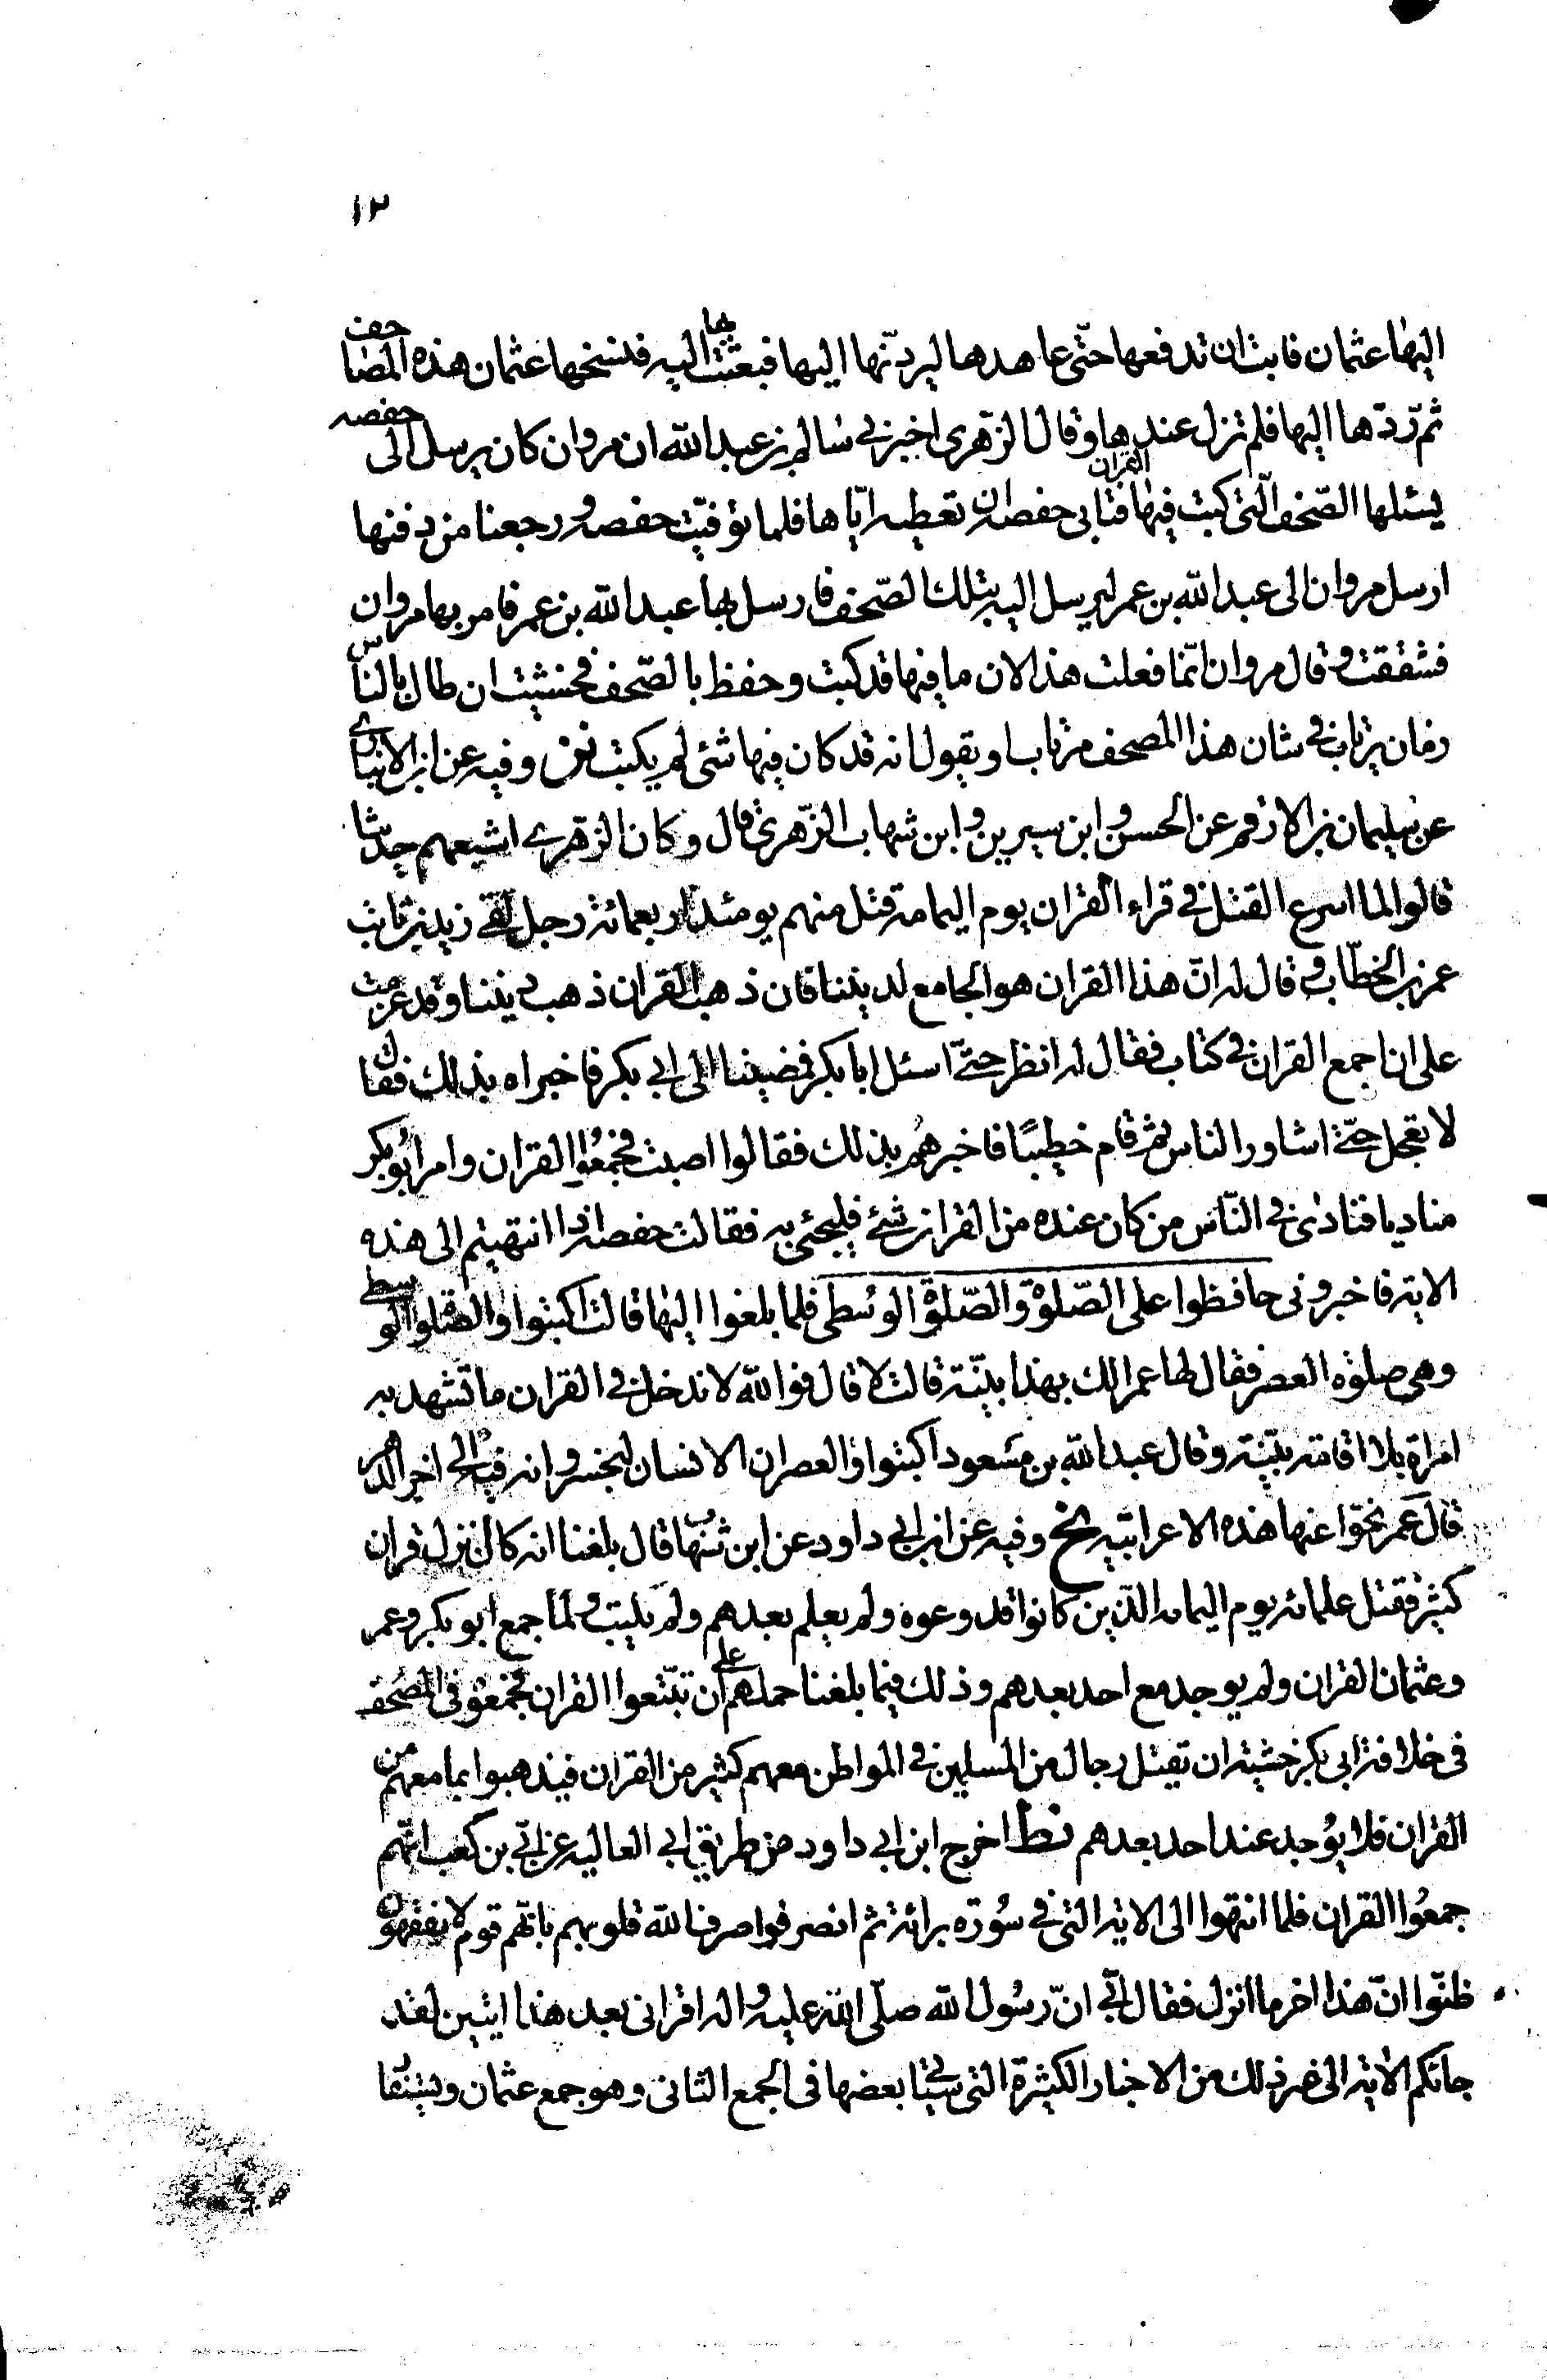 ١٢
اليها عثمان فابت ان تدفعها حتى عاهدها ليردنّها اليها فبعثت بها اليه فنسخها عثمان هذه المصاحف
ثم ردّها اليها فلم تزل عندها وقال الزهرى اخبرنى سالم بن عبد الله ان مروان كان يرسل الى حفصه
يسئلها الصّحف الّتى كتبت فيها القران فتابى حفصه ان تعطيه ايّاها فلما توفيت حفصه ورجعنا من دفنها
ارسل مروان الى عبد الله بن عمر ليرسل اليه بتلك الصّحف فارسل بها عبد الله بن عمر فامر بها مروان
فشققت وقال مروان انّما فعلت هذا لان ما فيها قد كتبت وحفظ بالصّحف فخشيت ان طال بالناس
زمان يرتاب فى شان هذا المصحف مرتاب او يقول انه قد كان فيها شئى لم يكتب وفيه عن ابن الانبارى
عن سليمان بن الارقم عن الحسن وابن سيرين وابن شهاب الزّهرى قال وكان الزهرى اشبعهم حديثا
قالوا لما اسرع القتل فى قراء القران يوم اليمامة قتل منهم يومئذ اربعمائة رجل لقى زيد بن ثابت
عمر بن الخطّاب وقال له انّ هذا القران هو الجامع لديننا فان ذهب القران ذهب ديننا وقد عزمت
على ان اجمع القران فى كتاب فقال له انظر حتّى اسئل ابا بكر فمضينا الى ابى بكر فاخبراه بذلك فقال
لا تعجل حتّى اشاور الناس ثم قام خطيبًا فاخبرهُم بذلك فقالوا اصبت فجمعُوا القران وامر ابُو بكر
مناديا فنادى فى النّاس من كان عنده من القران شئى فليجئى به فقالت حفصه اذا انتهيتم الى هذه
الايه فاخبرونى حافظوا على الصّلوة والصّلوة الوسطى فلما بلغوا اليها قالت اكتبوا والصّلوة الوسطى
وهى صلوه العصر فقال لها عمر الك بهذا بيّنة قالت لا قال فو الله لا ندخل فى القران ما تشهد به
امراة بلا اقامة بيّنة وقال عبد الله بن مسعود اكتبوا والعصر ان الانسان ليخسر وانه فيه الى اخر الدهر
قال عمر نحّوا عنها هذه الاعرابيّه يخ وفيه عن ابن ابى داود عن ابن شهاب قال بلغنا انه كان نزل قران
كثير فقتل علمائه يوم اليمامه الّذين كانوا قد وعوه ولم يعلم بعدهم ولم يكتب ولما جمع ابو بكر وعمر
وعثمان القران ولم يوجد مع احد بعدهم وذلك فيما بلغنا حملهم على ان تتبّعوا القران فجمعوه فى المصحف
فى خلافة ابى بكر خشية ان يقتل رجال من المسلمين فى المواطن معهم كثير من القران فيذهبوا بما معهم من
القران فلا يوُجد عند احد بعدهم نط اخرج ابن ابى داود من طريق ابى العاليه عن ابّى بن كعب انّهم
جمعُوا القران فلما انتهوا الى الايه التى فى سُورَه برائة ثم انصرفوا صرف الله قلوبهم بانّهم قوم لا يفقهون
ظنّوا انّ هذا اخر ما انزل فقال ابّى انّ رسُول الله صلّى الله عليه واله اقرانى بعد هذا ايتين لقد
جائكم الاية الى غير ذلك من الاخبار الكثيرة التى سياتى بعضها فى الجمع الثانى وهو جمع عثمان ويستفاد